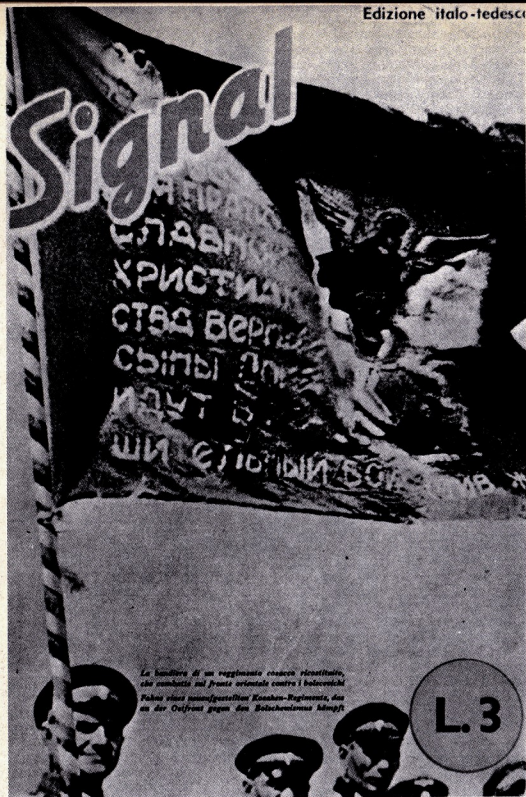 Edizione italo-tedesc
Signal
СЛАВНО
ХРИСТИАН
СТВА ВЕРН
СЫНЫ
ИДУТ
БОЙ
La bandiera di un reggimento cosacco ricostituito,
che combatte sul fronte orientale contro i bolscevichi
Fahne eines neuaufgestellten Kosaken-Regiments, das
an der Ostfront gegen den Bolschewismus kämpft
L. 3